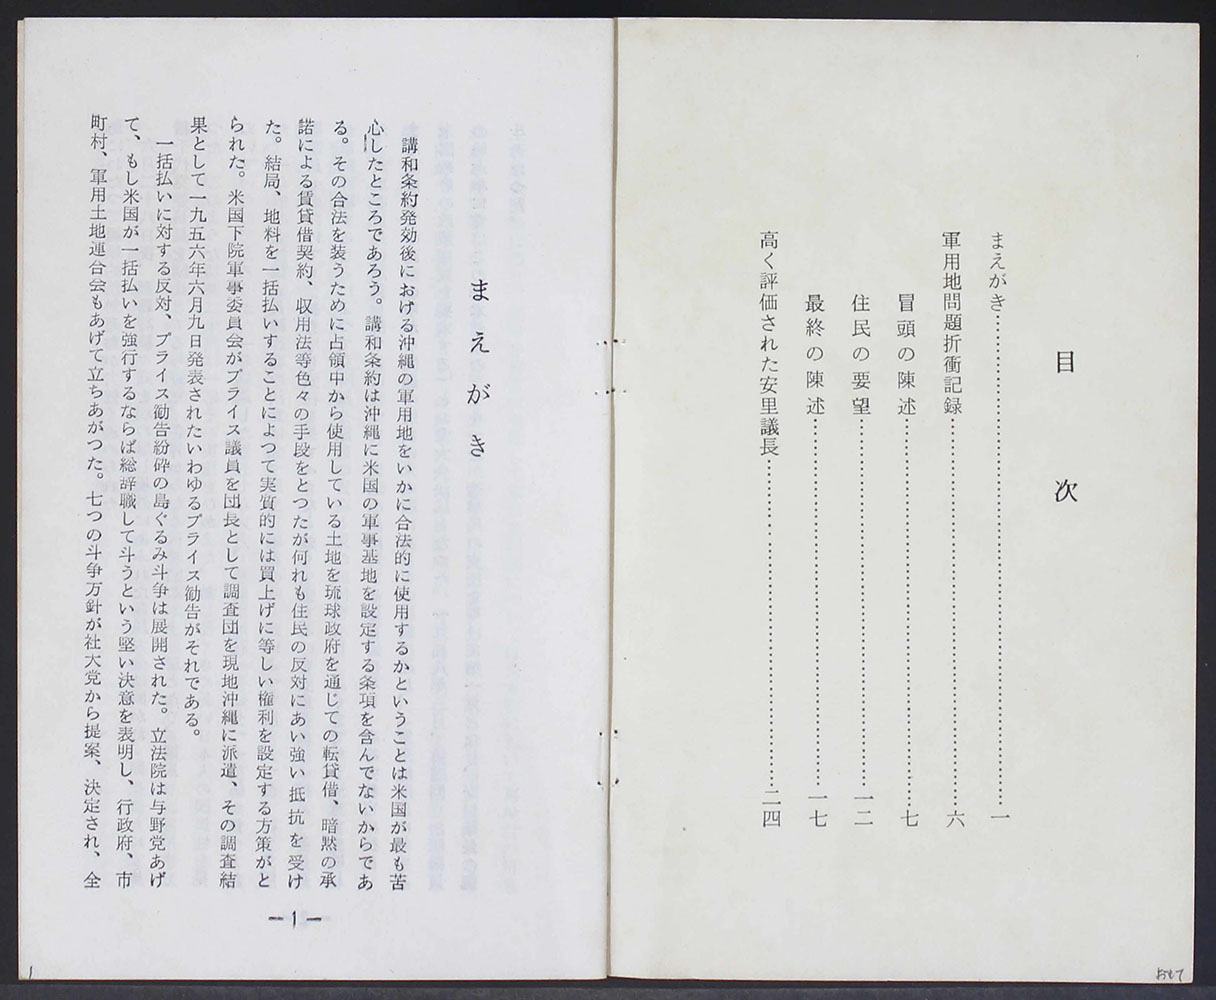 目次
まえがき……………………………一
軍用地問題折衝記録……………………………六
冒頭の陳述……………………………七
住民の要望……………………………一二
最終の陳述……………………………一七
高く評価された安里議長……………………………二四
おもて
まえがき
講和条約発効後における沖縄の軍用地をいかに合法的に使用するかということは米国が最も苦
心したところであろう。講和条約は沖縄に米国の軍事基地を設定する条項を含んでないからであ
る。その合法を装うために占領中から使用している土地を琉球政府を通じての転貸借、暗黙の承
諾による賃貸借契約、収用法等色々の手段をとつたが何れも住民の反対にあい強い抵抗を受け
た。結局、地料を一括払いすることによつて実質的には買上げに等しい権利を設定する方策がと
られた。米国下院軍事委員会がプライス議員を団長として調査団を現地沖縄に派遣、その調査結
果として一九五六年六月九日発表されたいわゆるプライス勧告がそれである。
一括払いに対する反対、プライス勧告紛砕の島ぐるみ斗争は展開された。立法院は与野党あげ
て、もし米国が一括払いを強行するならば総辞職して斗うという堅い決意を表明し、行政府、市
町村、軍用土地連合会もあげて立ちあがつた。七つの斗争万針が社大党から提案、決定され、全
—1—
1